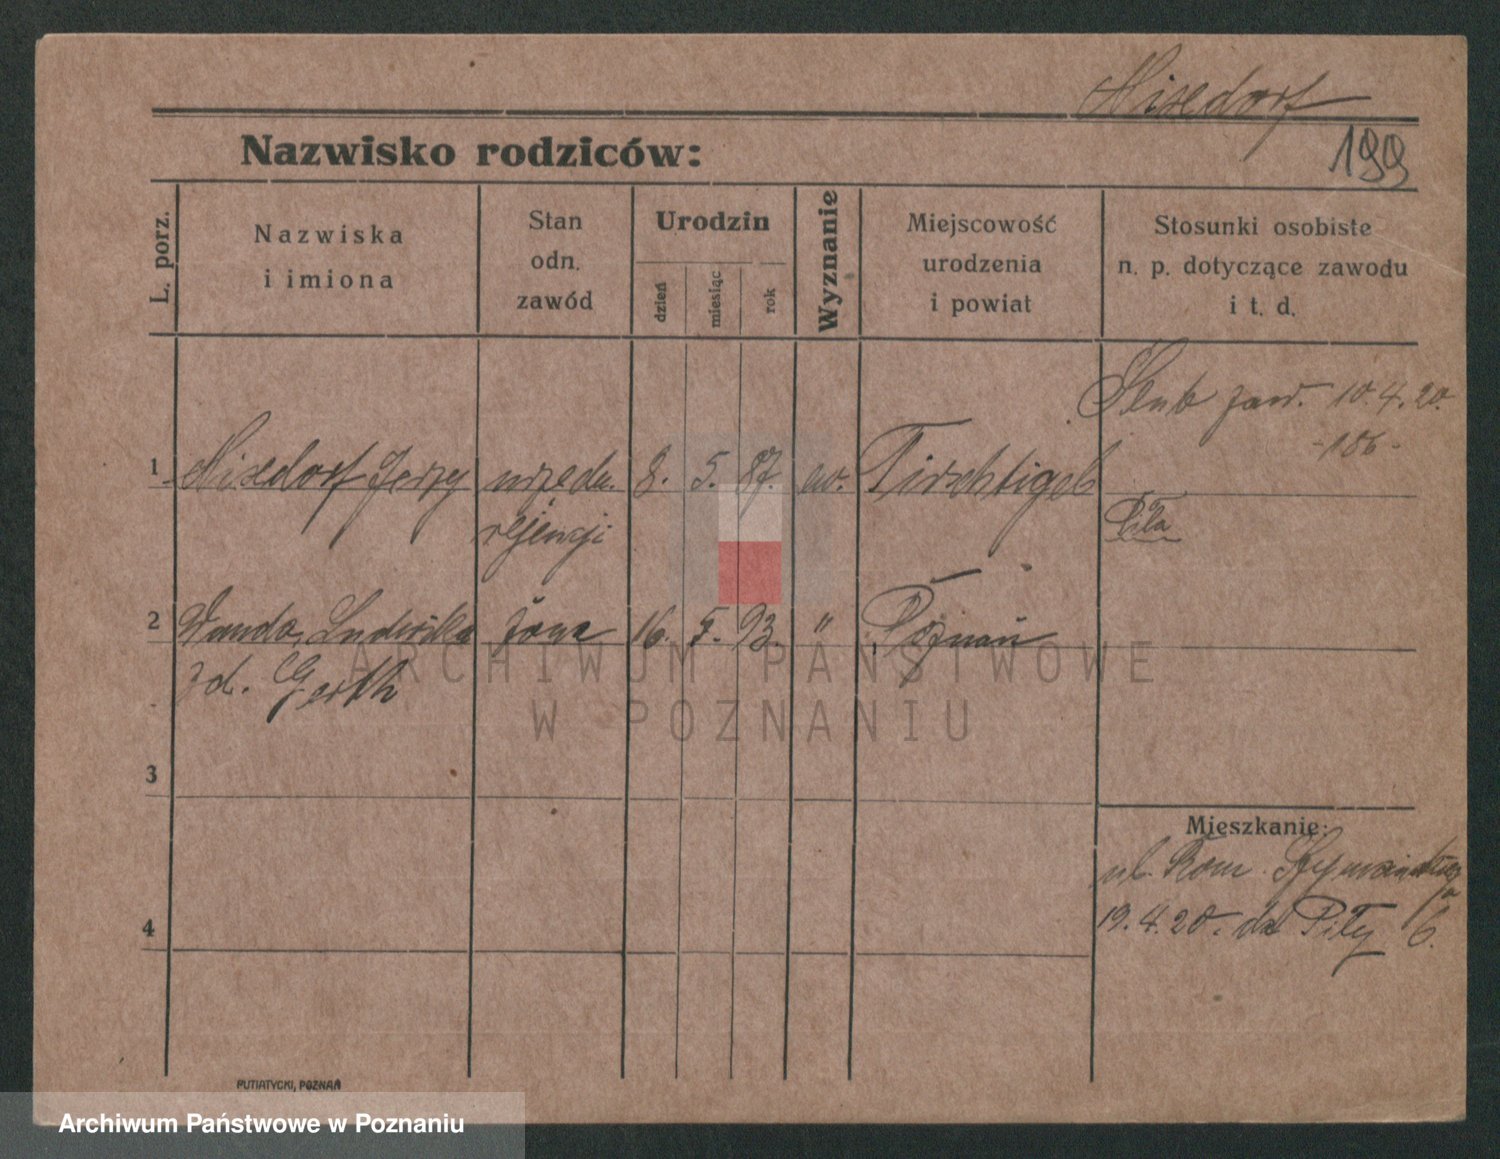 Nisedorf
199
Nazwisko rodziców:
L. porz.
Nazwiska
i imiona
Stan
odn.
zawód
Urodzin
dzień
miesiąc
rok
Wyznanie
Miejscowość
urodzenia
i powiat
Stosunki osobiste
n. p. dotyczące zawodu
i t. d.
Ślub zaw. 10.4.20.
-186-
1 Nisedorf Jerzy urzędn. 8. 5. 87. ew. Tirschtigel
rejencji
Piła
2 Wanda, Ludwika żona 16. 5. 93. " Poznań
zd. Gerth
3
4
Mieszkanie:
ul. Rom. Szymańskiego
19.4.20. do Piły 6.
PUTIATYCKI, POZNAŃ
ARCHIWUM PAŃSTWOWE
W POZNANIU
Archiwum Państwowe w Poznaniu